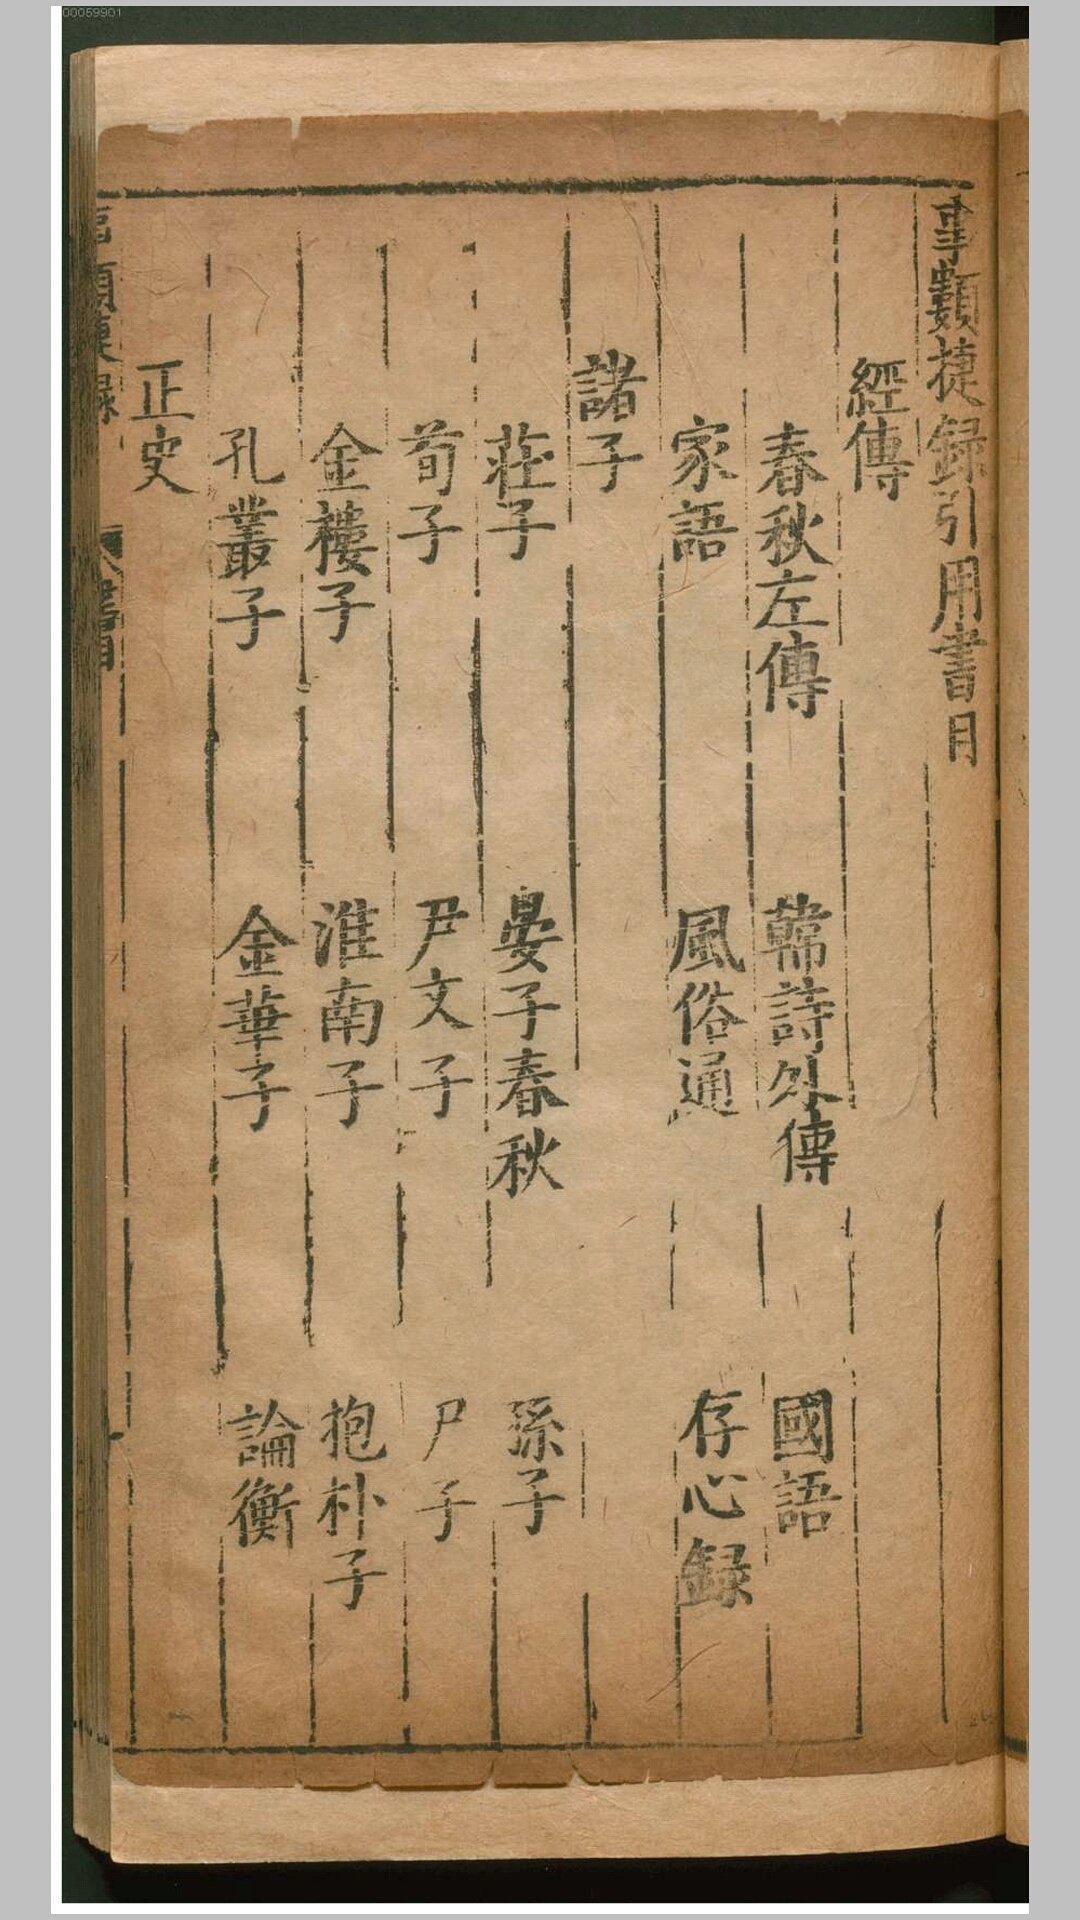 00059901
事類捷録引用書目
經傳
春秋左傳 韓詩外傳 國語
家語 風俗通 存心録
諸子
莊子 晏子春秋 孫子
荀子 尹文子 尸子
金樓子 淮南子 抱朴子
孔叢子 金華子 論衡
正史